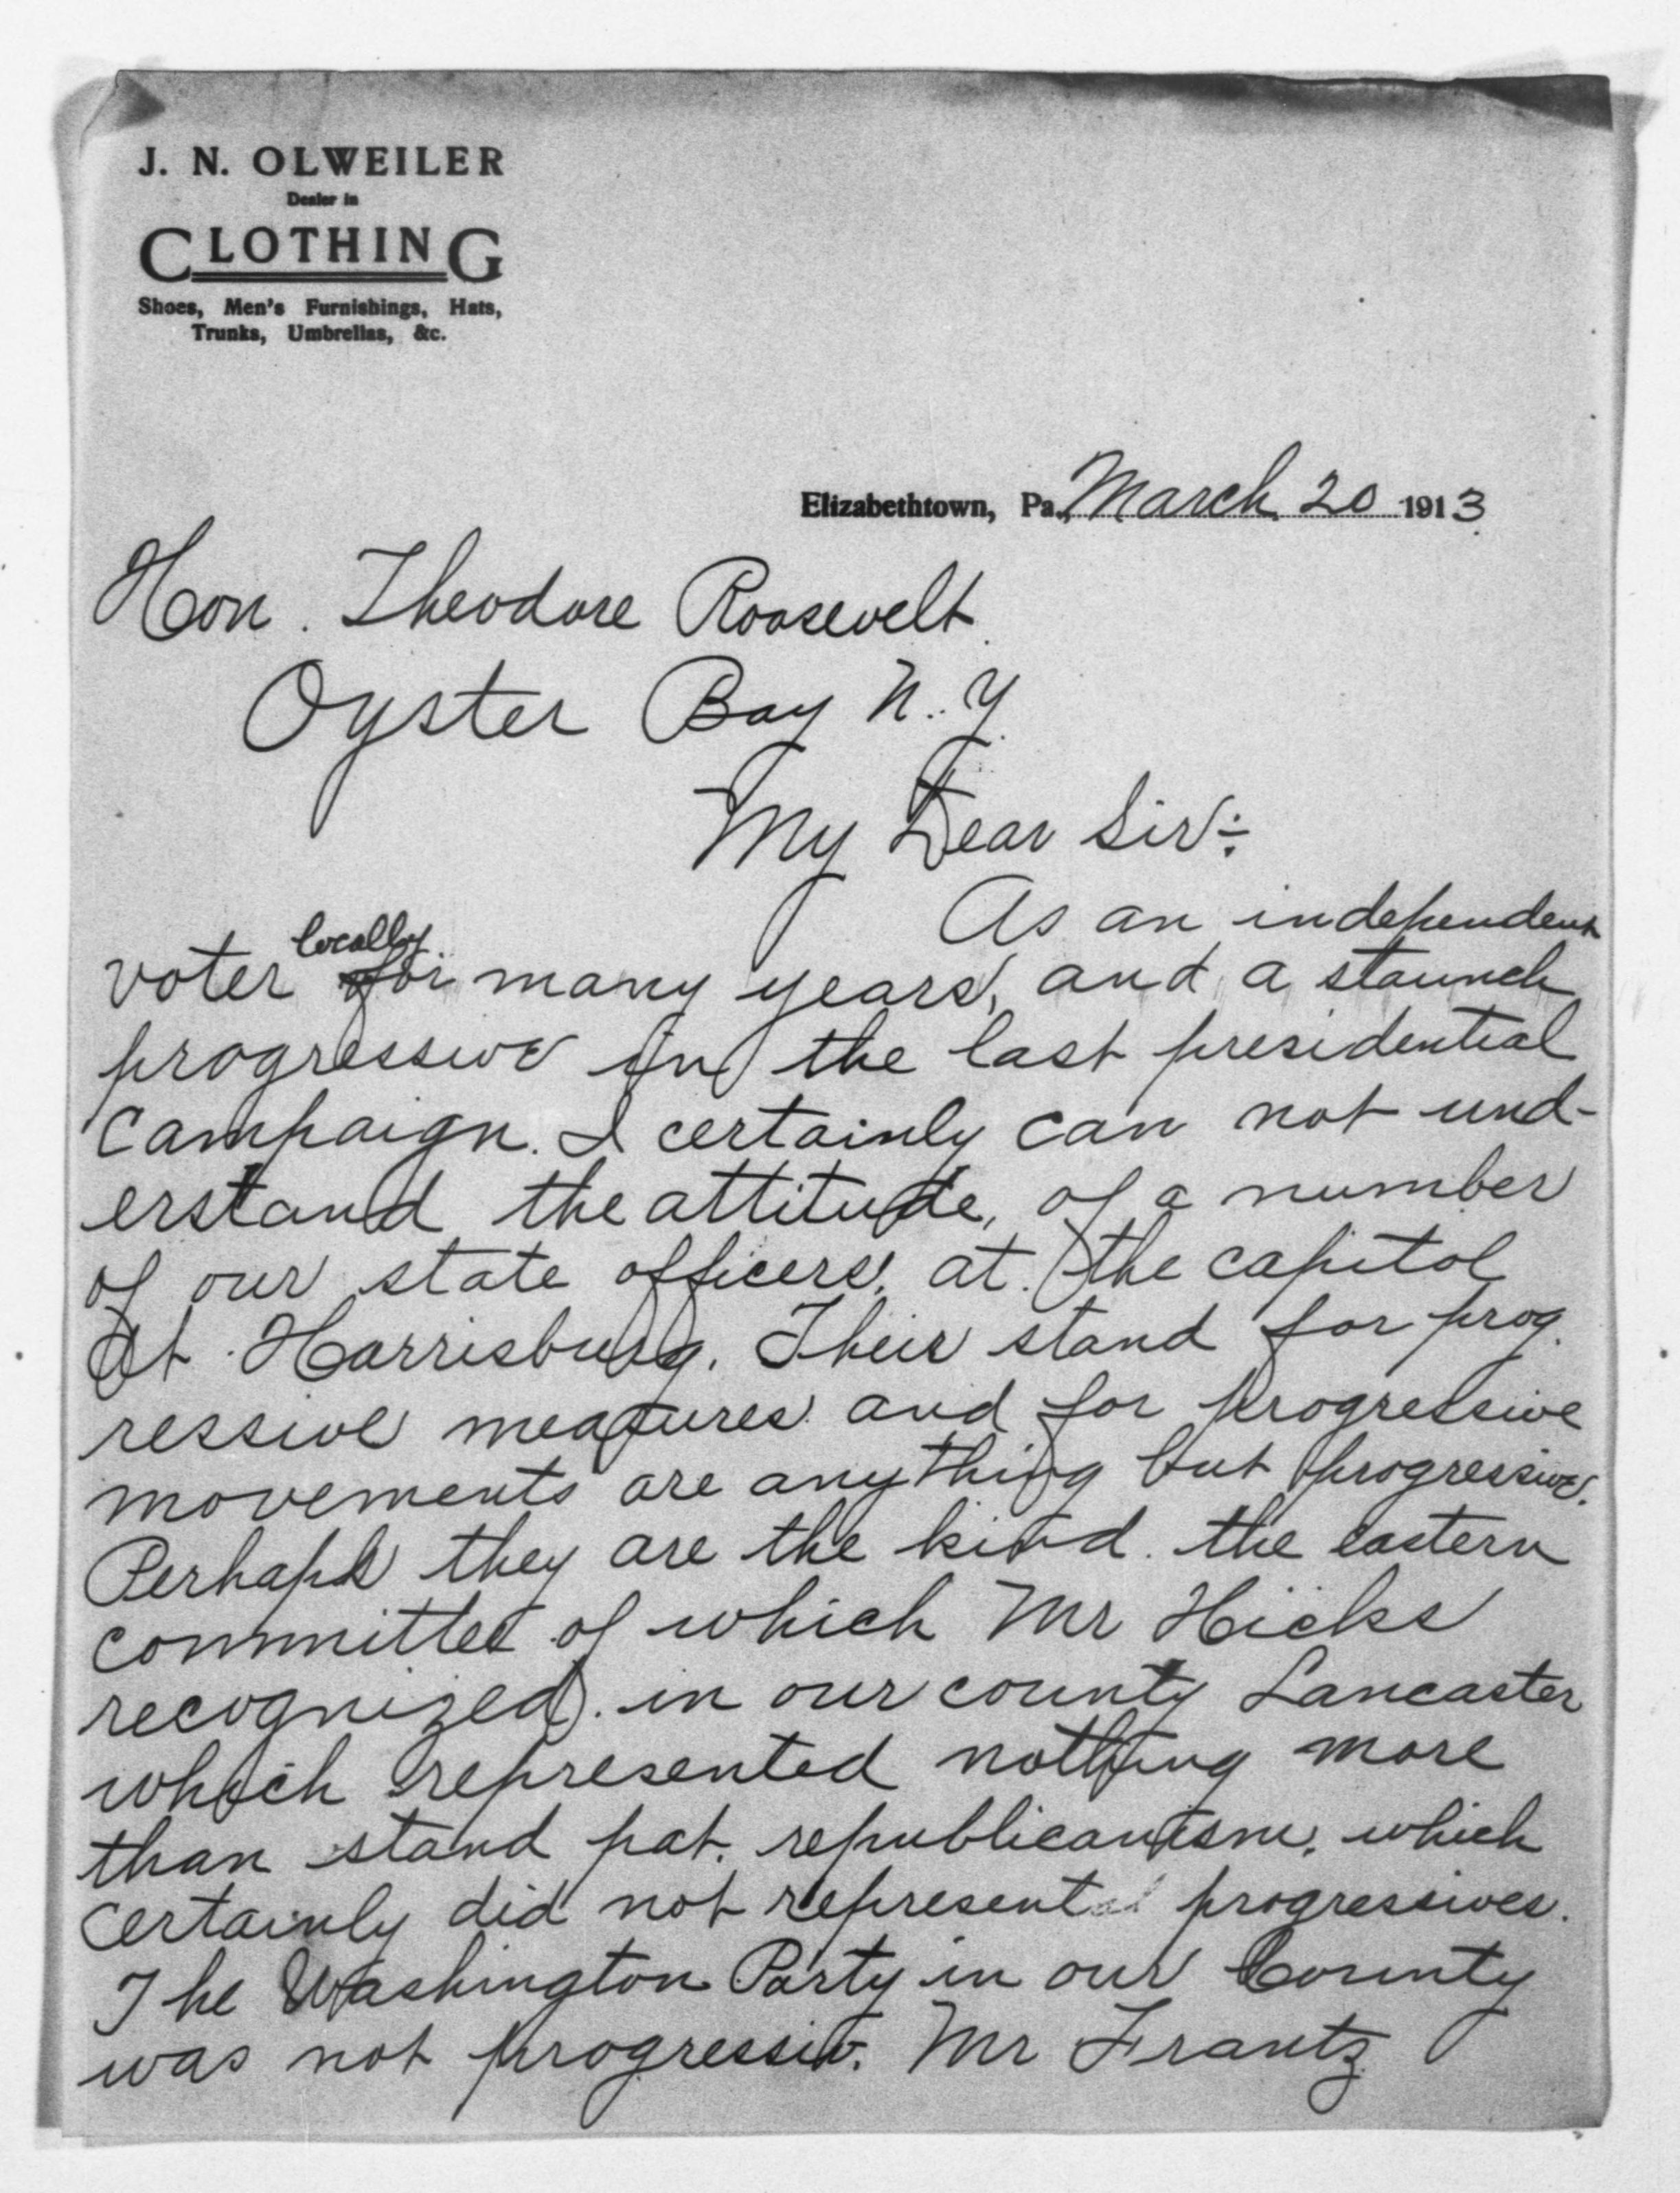 J. N. OLWEILER
Dealer in
CLOTHING
Shoes, Men's Furnishings, Hats,
Trunks, Umbrellas, &c.
Elizabethtown, Pa., March 20 1913
Hon. Theodore Roosevelt
Oyster Bay N.Y.
My Dear Sir:
As an independent
voter locally for many years, and a staunch
progressive in the last presidential
campaign. I certainly can not und-
erstand the attitude, of a number
of our state officers, at the capitol
At Harrisburg. Their stand for prog
ressive measures and for progressive
movements are anything but progressive.
Perhaps they are the kind the eastern
committee of which Mr Hicks
recognized. in our county Lancaster
which represented nothing more
than stand pat. republicanism, which
certainly did not represent progressives.
The Washington Party in our County
was not progressiv. Mr Frantz